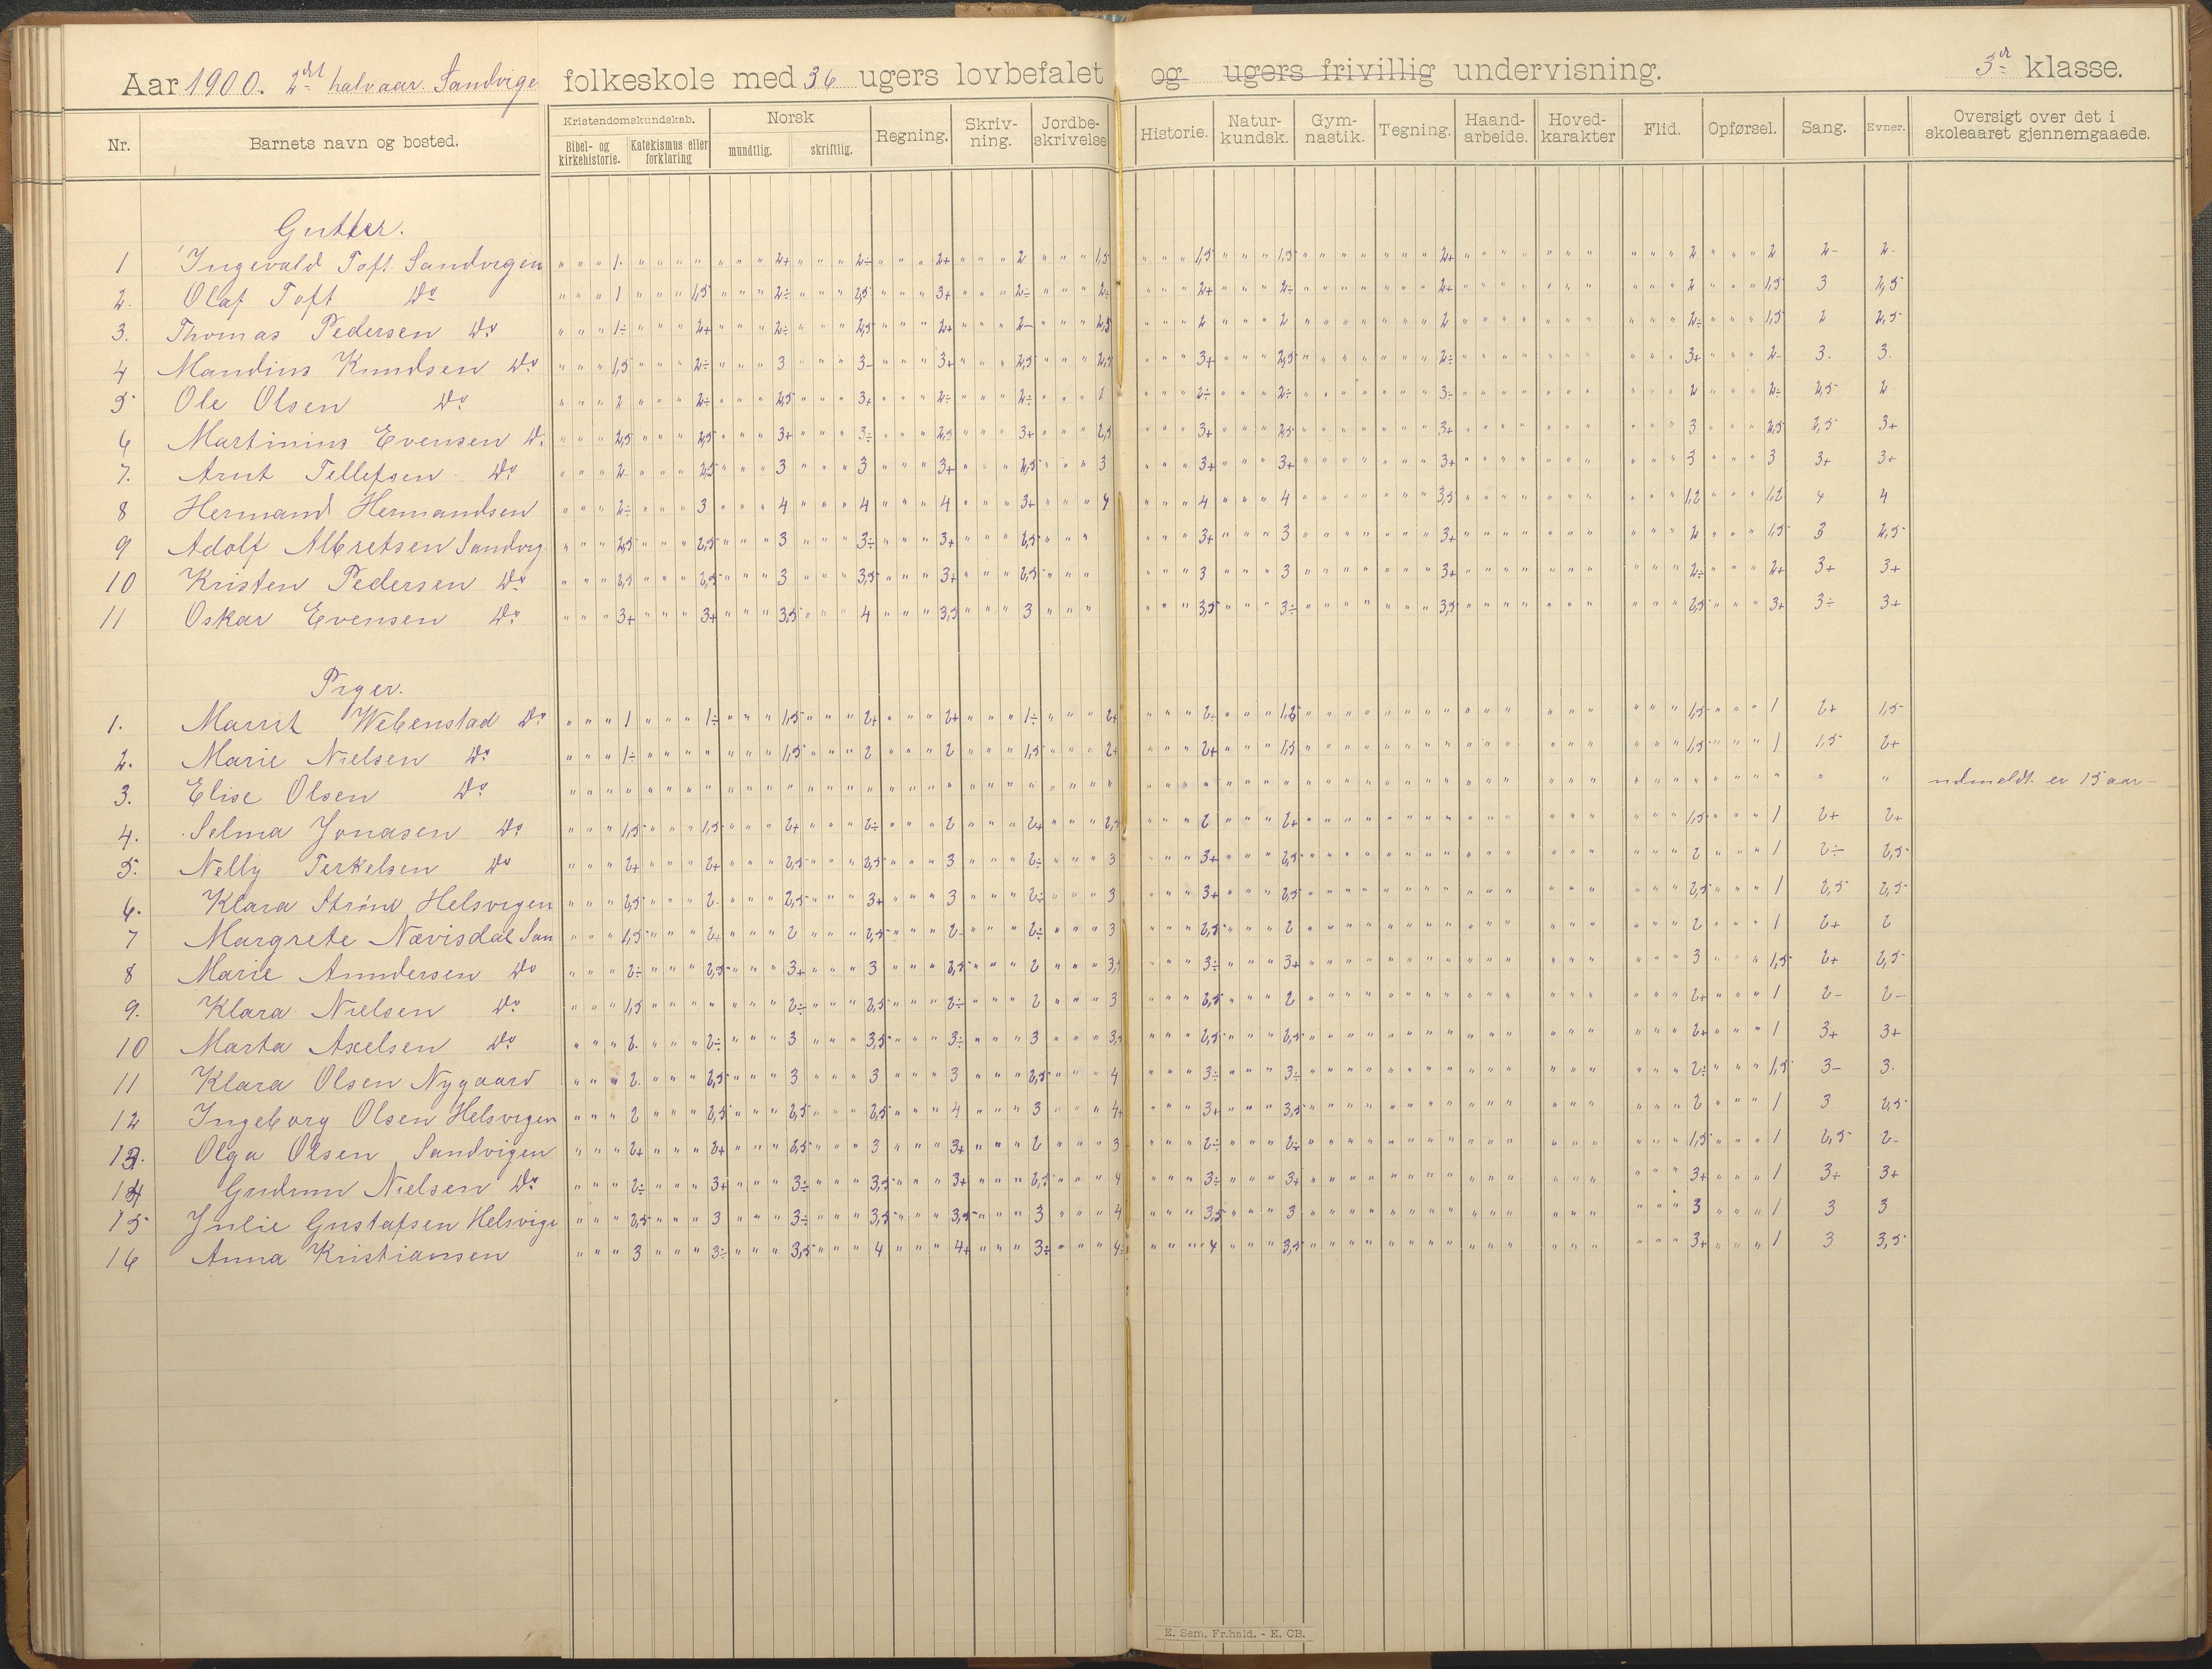 Aar 1900. 2det halvaar. Sandvige folkeskole med 36 ugers lovbefalet og ugers frivillig undervisning. 3die klasse.
Nr. Barnets navn og bosted. Kristendomskundskab. Bibel- og kirkehistorie. Katekismus eller forklaring Norsk mundtlig. skriftlig. Regning. Skriv-ning. Jordbe-skrivelse Historie. Natur-kundsk. Gym-nastik. Tegning. Haand-arbeide. Hoved-karakter Flid. Opførsel. Sang. Evner. Oversigt over det i skoleaaret gjennemgaaede.
Gutter.
1 Ingevald Toft Sandvigen " " " 1. " " " " " " " 2+ " " " 2÷ " " " 2+ " " " 2 " " " 1,5 " " " 1,5 " " " 1,5 " " " " " " " 2+ " " " " " " " " " " 2 " " " 2 2- 2-
2. Olaf Toft Do " " " 1 " " " 1,5 " " " 2÷ " " " 2,5 " " " 3+ " " " 2÷ " " " 2÷ " " " 2+ " " " 2÷ " " " " " " " 2+ " " " " " " " " " " 2 " " " 1,5 3 2,5
3. Thomas Pedersen Do " " " 1÷ " " " 2+ " " " 2÷ " " " 2,5 " " " 2+ " " " 2- " " " 2,5 " " " 2 " " " 2 " " " " " " " 2 " " " " " " " " " " 2÷ " " " 1,5 2 2,5
4 Mandius Knudsen Do " " " 1,5 " " " 2÷ " " " 3 " " " 3- " " " 3+ " " " 2,5 " " " 2,5 " " " 3+ " " " 2,5 " " " " " " " 2÷ " " " " " " " " " " 3+ " " " 2- 3. 3.
5 Ole Olsen Do " " " 2 " " " 2÷ " " " 2,5 " " " 3+ " " " 2÷ " " " 2÷ " " " 2 " " " 2÷ " " " 2÷ " " " " " " " 3÷ " " " " " " " " " " 2 " " " 2÷ 2,5 2
6 Martinius Evensen Do " " " 2,5 " " " 2,5 " " " 3+ " " " 3÷ " " " 2,5 " " " 3+ " " " 2,5 " " " 3+ " " " 2,5 " " " " " " " 3+ " " " " " " " " " " 3 " " " 2,5 2,5 3+
7. Arnt Tellefsen Do " " " 2 " " " 2,5 " " " 3 " " " 3 " " " 3+ " " " 2,5 " " " 3 " " " 3+ " " " 3+ " " " " " " " 3+ " " " " " " " " " " 3 " " " 3 3+ 3+
8 Hermand Hermandsen " " " 2÷ " " " 3 " " " 4 " " " 4 " " " 4 " " " 3+ " " " 4 " " " 4 " " " 4 " " " " " " " 3,5 " " " " " " " " " " 1,2 " " " 1,2 4 4
9 Adolf Albretsen Sandvig " " " 2,5 " " " 2,5 " " " 3 " " " 3÷ " " " 3+ " " " 2,5 " " " " " " 3+ " " " 3 " " " " " " " 3+ " " " " " " " " " " 2 " " " 1,5 3 2,5
10 Kristen Pedersen Do " " " 2,5 " " " 2,5 " " " 3 " " " 3,5 " " " 3+ " " " 2,5 " " " " " " 3 " " " 3 " " " " " " " 3+ " " " " " " " " " " 2÷ " " " 2+ 3+ 3+
11 Oskar Evensen Do " " " 3+ " " " 3+ " " " 3,5 " " " 4 " " " 3,5 " " " 3 " " " " " " 3,5 " " " 3÷ " " " " " " " 3,5 " " " " " " " " " " 2,5 " " " 3+ 3÷ 3+
Piger.
1. Marrit Webenstad Do " " " 1 " " " 1÷ " " " 1,5 " " " 2+ " " " 2+ " " " 1÷ " " " 2+ " " " 2÷ " " " 1,5 " " " " " " " " " " " " " " " " " 1,5 " " " 1 2+ 1,5
2. Marie Nielsen Do " " " 1÷ " " " " " " " 1,5 " " " 2 " " " 2 " " " 1,5 " " " 2+ " " " 2+ " " " 1,5 " " " " " " " " " " " " " " " " " 1,5 " " " 1 1,5 2+
3. Elise Olsen Do " " " " " " " " " " " " " " " " " " " " " " " " " " " " " " " " " " " " " " " " " " " " " " " " " " " " " " " " " " " " " " udmeldt. er 15 aar –
4. Selma Jonasen Do " " " 1,5 " " " 1,5 " " " 2+ " " " 2÷ " " " 2 " " " 2+ " " " 2,5 " " " 2 " " " 2+ " " " " " " " " " " " " " " " " " 1,5 " " " 1 2+ 2+
5. Nelly Terkelsen Do " " " 2+ " " " 2+ " " " 2,5 " " " 2,5 " " " 3 " " " 2÷ " " " 3 " " " 3+ " " " 2,5 " " " " " " " " " " " " " " " " " 2 " " " 1 2÷ 2,5
6. Klara Strøm Helsvigen " " " 2,5 " " " 2- " " " 2,5 " " " 3+ " " " 3 " " " 2÷ " " " 3 " " " 3+ " " " 2,5 " " " " " " " " " " " " " " " " " 2,5 " " " 1 2,5 2,5
7 Margrete Nævisdal San " " " 1,5 " " " 2+ " " " 2 " " " 2,5 " " " 2- " " " 2÷ " " " 3 " " " 2,5 " " " 2 " " " " " " " " " " " " " " " " " 2 " " " 1 2+ 2
8 Marie Anndersen Do " " " 2÷ " " " 2,5 " " " 3+ " " " 3 " " " 2,5 " " " 2 " " " 3,5 " " " 3÷ " " " 3+ " " " " " " " " " " " " " " " " " 3 " " " 1,5 2+ 2,5
9. Klara Nielsen Do " " " 1,5 " " " " " " " 2÷ " " " 2,5 " " " 2÷ " " " 2 " " " 3 " " " 2,5 " " " 2 " " " " " " " " " " " " " " " " " 2+ " " " 1 2- 2-
10 Marta Axelsen Do " " " 2. " " " 2÷ " " " 3 " " " 3,5 " " " 3÷ " " " 3 " " " 3,5 " " " 2,5 " " " 2,5 " " " " " " " " " " " " " " " " " 2+ " " " 1 3+ 3+
11 Klara Olsen Nygaard " " " 2. " " " 2,5 " " " 3 " " " 3 " " " 3 " " " 2,5 " " " 4 " " " 3÷ " " " 3÷ " " " " " " " " " " " " " " " " " 2÷ " " " 1,5 3- 3.
12 Ingeborg Olsen Helsvigen " " " 2 " " " 2,5 " " " 2,5 " " " 2,5 " " " 4 " " " 3 " " " 4+ " " " 3+ " " " 3,5 " " " " " " " " " " " " " " " " " 2 " " " 1 3 2,5
13. Olga Olsen Sandvigen " " " 2+ " " " 2+ " " " 2,5 " " " 3 " " " 3+ " " " 2 " " " 3 " " " 2÷ " " " 2÷ " " " " " " " " " " " " " " " " " 1,5 " " " 1 2,5 2-
14 Gudrun Nielsen Do " " " 2÷ " " " 3+ " " " 3÷ " " " 3,5 " " " 3+ " " " 2,5 " " " 4 " " " 3÷ " " " 3+ " " " " " " " " " " " " " " " " " 3+ " " " 1 3+ 3+
15 Julie Gustafsen Helsvige " " " 2,5 " " " 3 " " " 3÷ " " " 3,5 " " " 3,5 " " " 3 " " " 4 " " " 3,5 " " " 3 " " " " " " " " " " " " " " " " " 3 " " " 1 3 3
16 Anna Kristiansen " " " 3 " " " 3÷ " " " 3,5 " " " 4 " " " 4+ " " " 3÷ " " " 4÷ " " " 4 " " " 3,5 " " " " " " " " " " " " " " " " " 3+ " " " 1 3 3,5
E. Sem, Fr.hald. - E. CB.